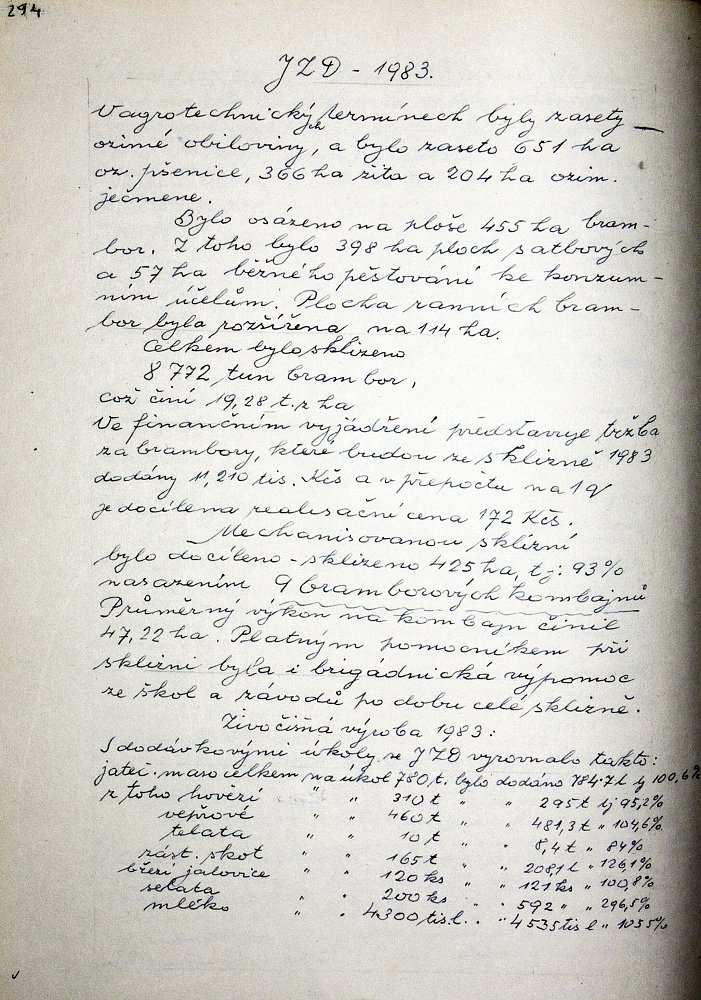 294
JZD - 1983.
V agrotechnických termínech byly zasety
ozimé obiloviny, a bylo zaseto 651 ha
oz. pšenice, 366 ha žita a 204 ha ozim.
ječmene.
Bylo osázeno na ploše 455 ha bram-
bor. Z toho bylo 398 ha ploch satbových
a 57 ha běžného pěstování ke konzum-
ním účelům. Plocha ranních bram-
bor byla rozšířena na 114 ha.
Celkem bylo sklizeno
8 772 tun brambor,
což činí 19,28 t. z ha
Ve finančním vyjádření představuje tržba
za brambory, které budou ze sklizně 1983
dodány 11,210 tis. Kčs a v přepočtu na 1 q
je docílena realisační cena 172 Kčs.
Mechanisovanou sklizní
bylo docíleno - sklizeno 425 ha, t.j: 93%
nasazením 9 bramborových kombajnů
Průměrný výkon na kombajn činil
47,22 ha. Platným pomocníkem při
sklizni byla i brigádnická výpomoc
ze škol a závodů po dobu celé sklizně.
Živočišná výroba 1983:
S dodávkovými úkoly se JZD vyrovnalo takto:
jateč. maso celkem na úkol 780 t. bylo dodáno 784.7 t tj 100,6%
z toho hovězí " " 310 t " " 295 t tj 95,2%
vepřové " " 460 t " " 481,3 t " 104,6%
telata " " 10 t " " 8,4 t " 84%
zást. skot " " 165 t " " 208,1 t " 126,1%
březí jalovice " " 120 ks " " 121 ks " 100,8%
selata " " 200 ks " " 592 " " 296,5%
mléko " " 4300 tis l. " " 4535 tis l " 105,5%